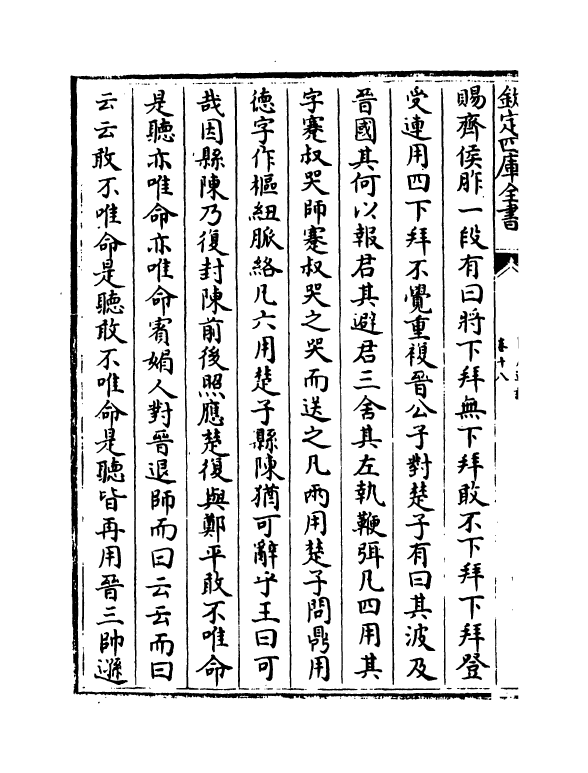 欽定四庫全書
卷十八
賜齊侯胙一段有曰將下拜無下拜敢不下拜下拜登
受連用四下拜不覺重複晉公子對楚子有曰其波及
晉國其何以報君其避君三舍其左執鞭弭凡四用其
字蹇叔哭師蹇叔哭之哭而送之凡兩用楚子問鼎用
德字作樞紐脈絡凡六用楚子縣陳猶可辭乎王曰可
哉因縣陳乃復封陳前後照應楚復與鄭平敢不唯命
是聽亦唯命亦唯命賓媚人對晉退師而曰云云而曰
云云敢不唯命是聽敢不唯命是聽皆再用晉三帥遜